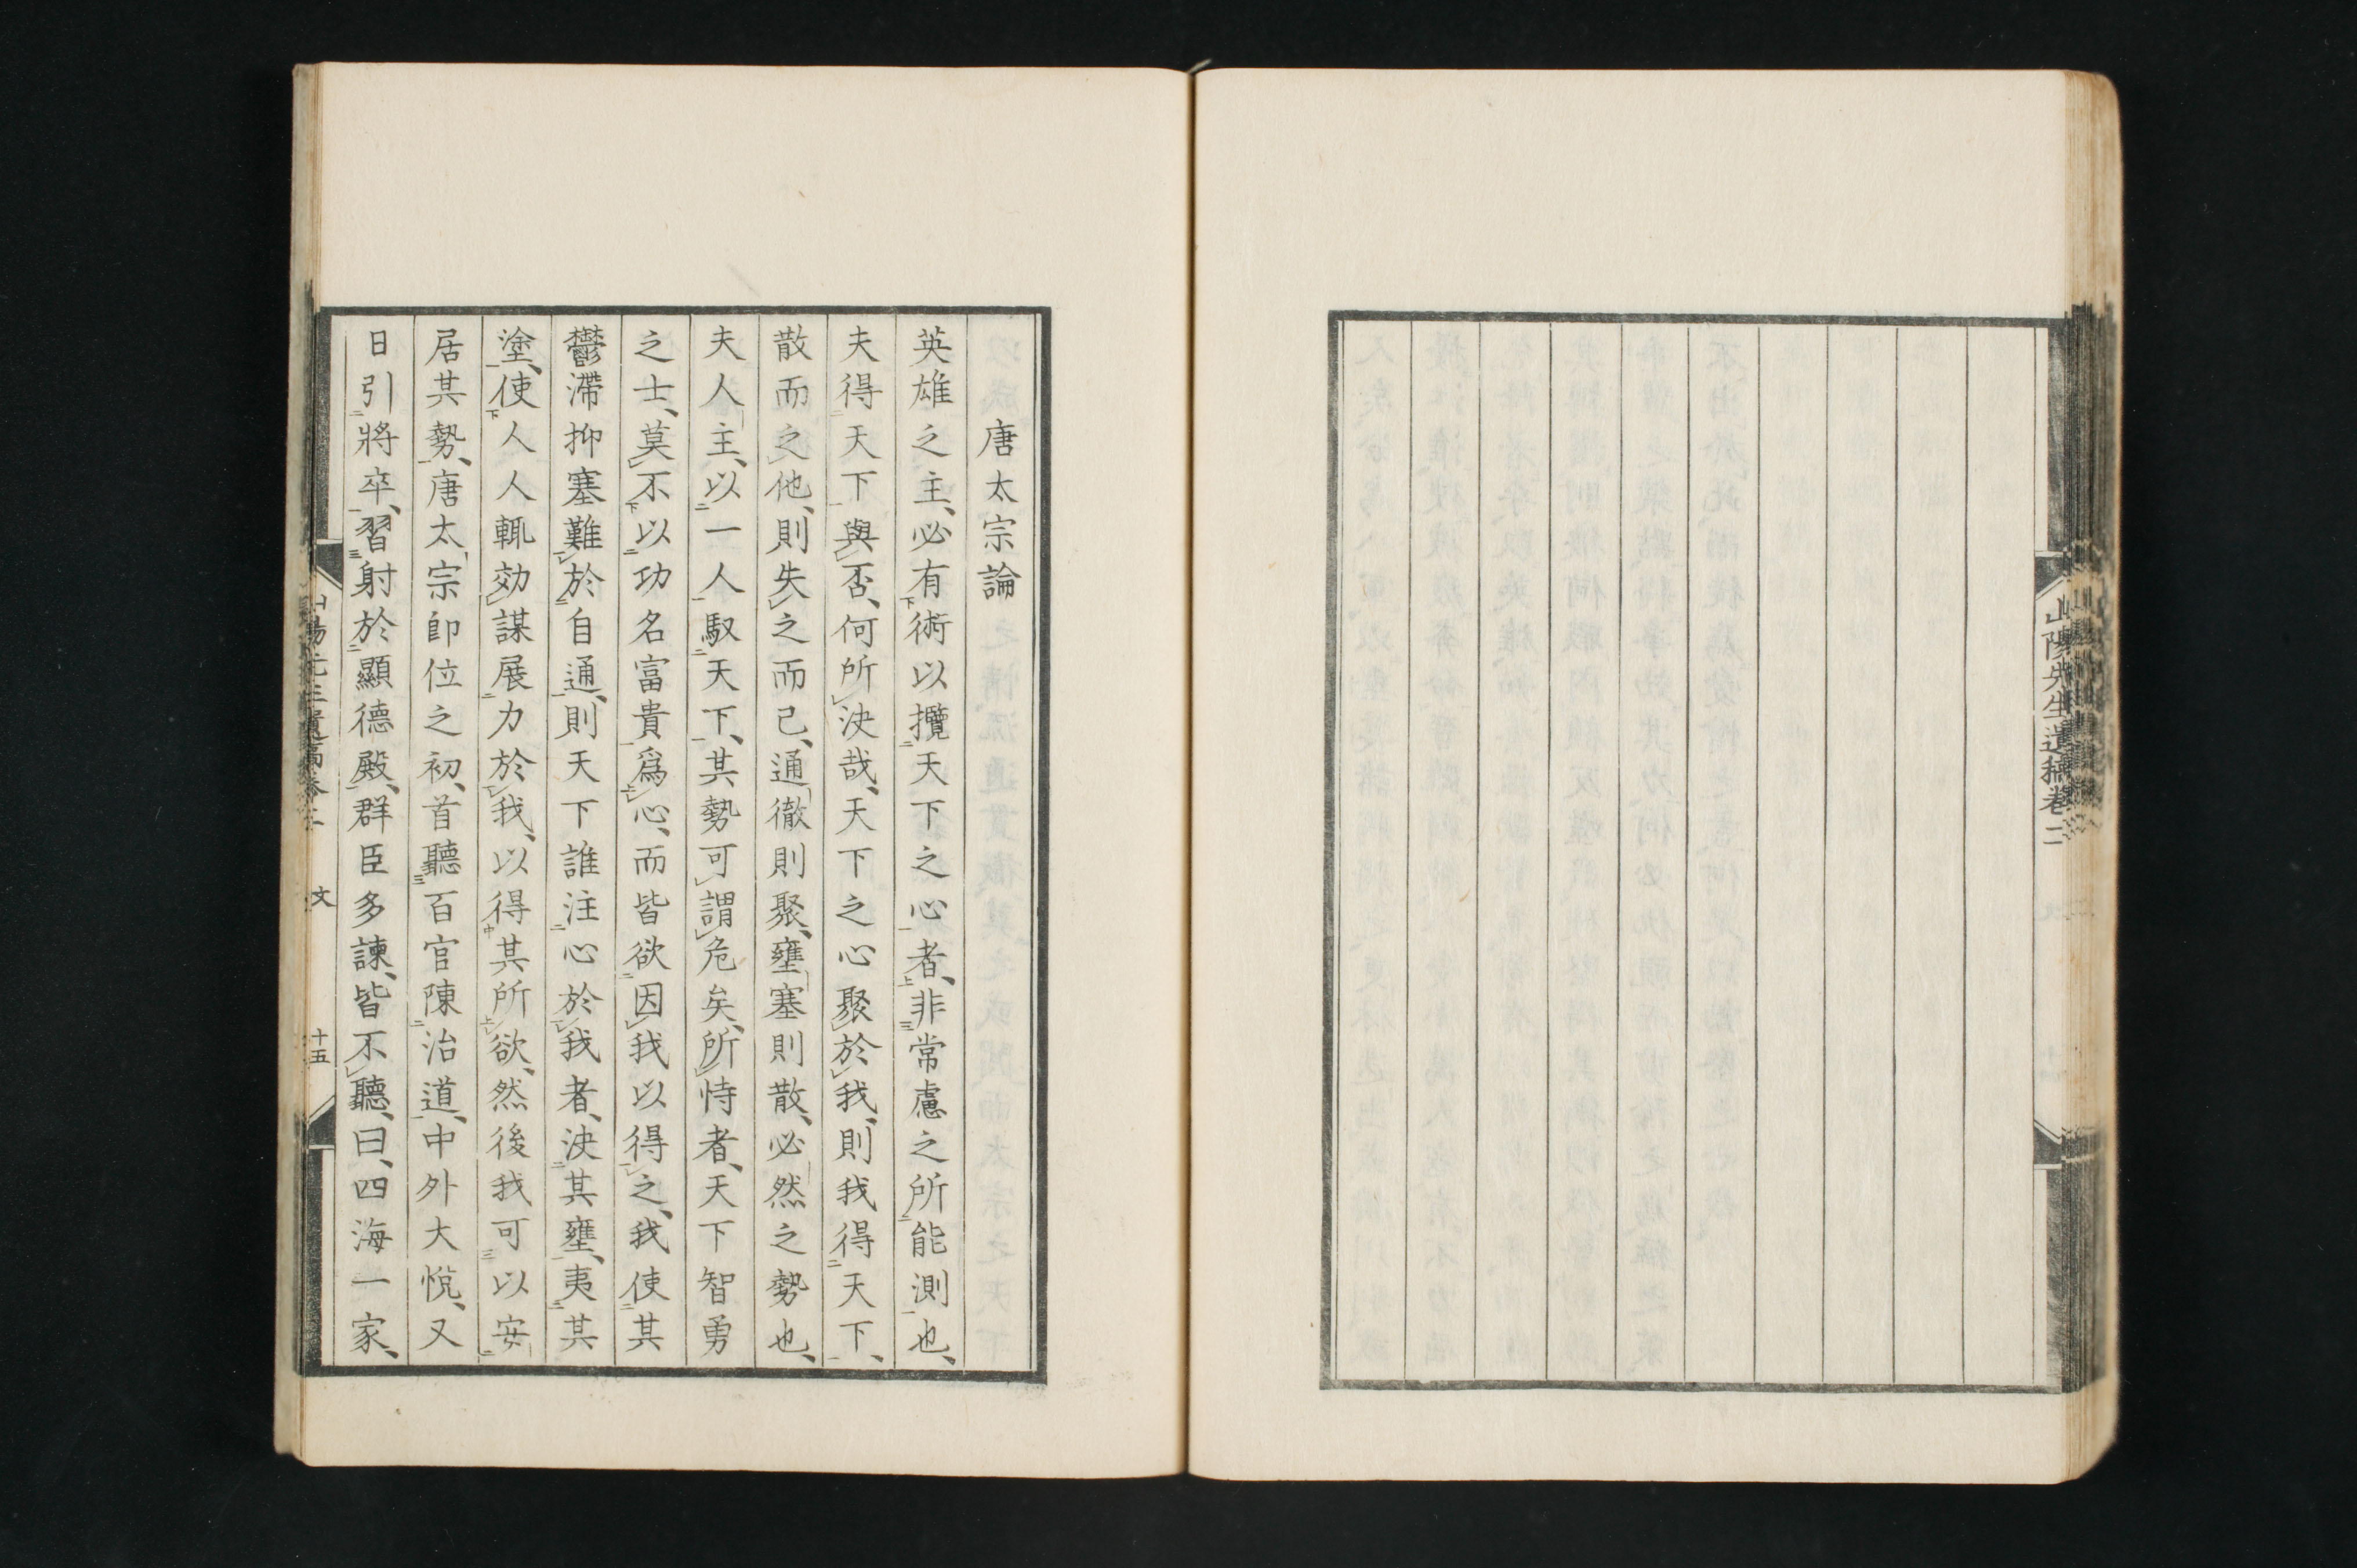 山陽先生遺稿卷二
唐太宗論
英雄之主、必有術以攬天下之心者、非常慮之所能測也、
夫得天下與否、何所決哉、天下之心聚於我、則我得天下、
散而之他、則失之而已、通徹則聚、壅塞則散、必然之勢也、
夫人主、以一人馭天下、其勢可謂危矣、所恃者、天下智勇
之士、莫不以功名富貴爲心、而皆欲因我以得之、我使其
鬱滯抑塞難於自通、則天下誰注心於我者、決其壅、夷其
塗、使人人輒効謀展力於我、以得其所欲、然後我可以安
居其勢、唐太宗卽位之初、首聽百官陳治道、中外大悅、又
日引將卒、習射於顯德殿、群臣多諫、皆不聽、曰、四海一家、
文
十五